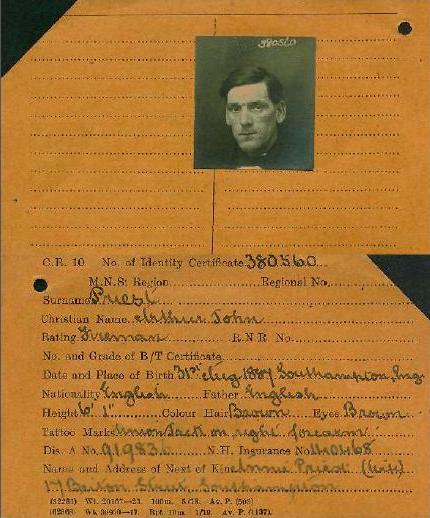 380560
C.R. 10 No. of Identity Certificate 380560
M.N.S. Region Regional No.
Surname Priest
Christian Name Arthur John
Rating Fireman R.N.R No.
No. and Grade of B/T Certificate
Date and Place of Birth 31st Aug 1887 Southampton, Eng.
Nationality English Father English
Height 6' 1" Colour Hair Brown Eyes Brown
Tattoo Marks Union Jack on right forearm
Dis. A No. 919836 N.H. Insurance No.
Name and Address of Next of Kin Annie Priest (Wife)
17 Street, Southampton
(52251) Wt. 20157—23. 100m. 5/18. Av. P. (503)
Av. P. (1137).